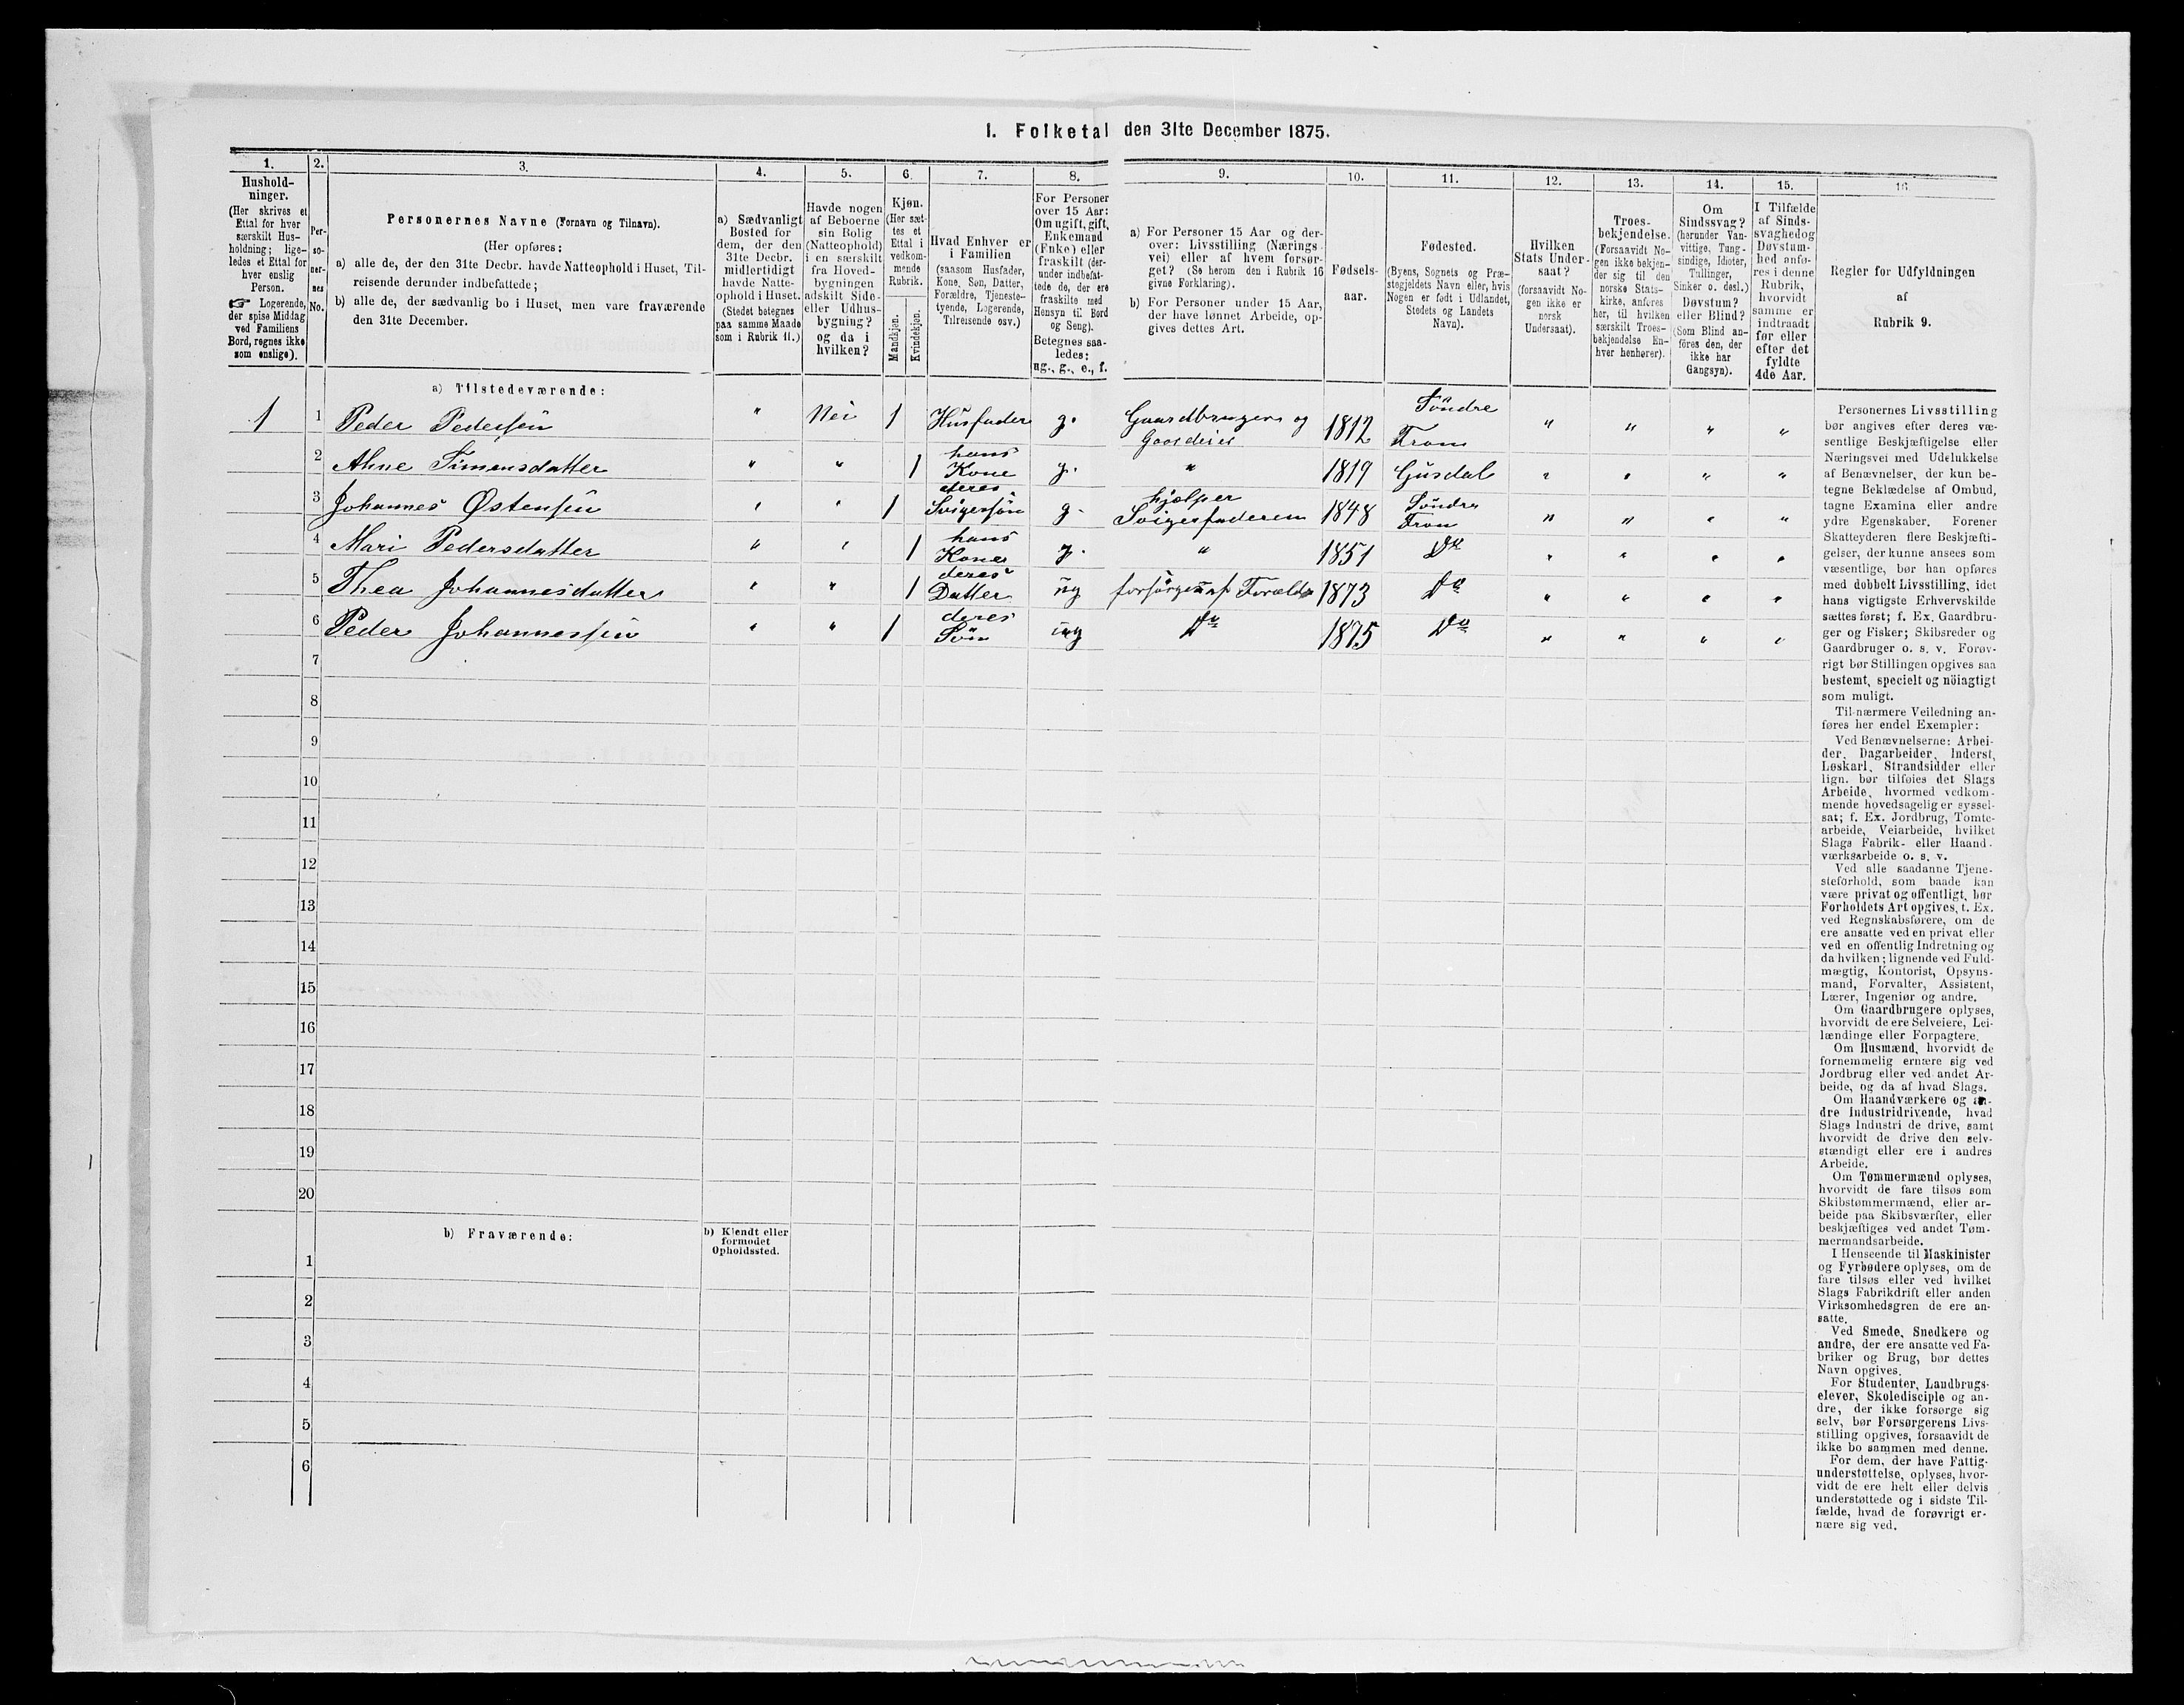 I. Folketal den 31te December 1875.
1. 2. 3. 4. 5. 6. 7. 8. 9. 10. 11. 12. 13. 14. 15. 16
Hushold-
ninger.
(Her skrives et
Ettal for hver
særskilt Hus-
holdning; lige-
ledes et Ettal for
hver enslig
Person.
☞ Logerende,
der spise Middag
ved Familiens
Bord, regnes ikke
som enslige).
Per-
so-
ner-
nes
No.
Personernes Navne (Fornavn og Tilnavn).
(Her opføres:
a) alle de, der den 31te Decbr. havde Natteophold i Huset, Til-
reisende derunder indbefattede;
b) alle de, der sædvanlig bo i Huset, men vare fraværende
den 31te December.
a) Sædvanligt
Bosted for
dem, der den
31te Decbr.
midlertidigt
havde Natte-
ophold i Huset.
(Stedet betegnes
paa samme Maade
som i Rubrik 11.)
Havde nogen
af Beboerne
sin Bolig
(Natteophold)
i en særskilt
fra Hoved-
bygningen
adskilt Side-
eller Udhus-
bygning?
og da i
hvilken?
Kjøn.
(Her sæt-
tes et
Ettal i
vedkom-
mende
Rubrik.
Mandkjøn.
Kvindekjøn.
Hvad Enhver er
i Familien
(saasom Husfader,
Kone, Søn, Datter,
Forældre, Tjeneste-
tyende, Logerende,
Tilreisende osv.)
For Personer
over 15 Aar:
Om ugift, gift,
Enkemand
(Enke) eller
fraskilt (der-
under indbefat-
tede de, der ere
fraskilte med
Hensyn til Bord
og Seng).
Betegnes saa-
ledes:
ug., g., e., f.
a) For Personer 15 Aar og der-
over: Livsstilling (Nærings-
vei) eller af hvem forsør-
get? (Se herom den i Rubrik 16
givne Forklaring).
b) For Personer under 15 Aar,
der have lønnet Arbeide, op-
gives dettes Art.
Fødsels-
aar.
Fødested.
(Byens, Sognets og Præ-
stegjeldets Navn eller, hvis
Nogen er født i Udlandet,
Stedets og Landets
Navn).
Hvilken
Stats Under-
saat?
(forsaavidt No-
gen ikke er
norsk
Undersaat).
Troes-
bekjendelse.
(Forsaavidt No-
gen ikke bekjen-
der sig til den
norske Stats-
kirke, anføres
her, til hvilken
særskilt Troes-
bekjendelse En-
hver henhører).
Om
Sindssvag?
(herunder Van-
vittige, Tung-
sindige, Idioter,
Tullinger,
Sinker o. desl.)
Døvstum?
eller Blind?
(Som Blind an-
føres den, der
ikke har
Gangsyn).
I Tilfælde
af Sinds-
svaghed og
Døvstum-
hed anfø-
res i denne
Rubrik,
hvorvidt
samme er
indtraadt
før eller
efter det
fyldte
4de Aar.
Regler for Udfyldningen
af
Rubrik 9.
a) Tilstedeværende:
1 1 Peder Pedersen " Nei 1 Husfader g. Gaardbruger og Gaardeier 1812 Söndre Fron " " " "
2 Ahne Simensdatter " " 1 hans Kone g. " 1819 Gusdal " " " "
3 Johannes Østensen " " 1 deres Svigersøn g. hjelper Svigerfaderen 1848 Söndre Fron " " " "
4 Mari Pedersdatter " " 1 hans Kone g. " 1851 Do " " " "
5 Thea Johannesdatter " " 1 deres Datter ug forsörgen af Foræld 1873 Do " " " "
6 Peder Johannessen " " 1 deres Sön ug Do 1875 Do " " " "
7
8
9
10
11
12
13
14
15
16
17
18
19
20
b) Fraværende:
b) Kjendt eller
formodet
Opholdssted.
1
2
3
4
5
6
Personernes Livsstilling
bør angives efter deres væ-
sentlige Beskjæftigelse eller
Næringsvei med Udelukkelse
af Benævnelser, der kun be-
tegne Beklædelse af Ombud,
tagne Examina eller andre
ydre Egenskaber. Forener
Skatteyderen flere Beskjæfti-
gelser, der kunne ansees som
væsentlige, bør han opføres
med dobbelt Livsstilling, idet
hans vigtigste Erhvervskilde
sættes først; f. Ex. Gaardbru-
ger og Fisker; Skibsreder og
Gaardbruger o. s. v. Forøv-
rigt bør Stillingen opgives saa
bestemt, specielt og nöiagtigt
som muligt.
Til nærmere Veiledning an-
føres her endel Exempler:
Ved Benævnelserne: Arbei-
der, Dagarbeider, Inderst,
Løskarl, Strandsidder eller
lign. bør tilføies det Slags
Arbeide, hvormed vedkom-
mende hovedsagelig er syssel-
sat; f. Ex. Jordbrug, Tomte-
arbeide, Veiarbeide, hvilket
Slags Fabrik- eller Haand-
værksarbeide o. s. v.
Ved alle saadanne Tjene-
steforhold, som baade kan
være privat og offentligt, bør
Forholdets Art opgives, t. Ex.
ved Regnskabsførere, om de
ere ansatte ved en privat eller
ved en offentlig Indretning og
da hvilken; lignende ved Fuld-
mægtig, Kontorist, Opsyns-
mand, Forvalter, Assistent,
Lærer, Ingeniør og andre.
Om Gaardbrugere oplyses,
hvorvidt de ere Selveiere, Lei-
lændinge eller Forpagtere.
Om Husmænd, hvorvidt de
fornemmelig ernære sig ved
Jordbrug eller ved andet Ar-
beide, og da af hvad Slags.
Om Haandværkere og an-
dre Industridrivende, hvad
Slags Industri de drive, samt
hvorvidt de drive den selv-
stændigt eller ere i andres
Arbeide.
Om Tømmermænd oplyses,
hvorvidt de fare tilsøs som
Skibstømmermænd, eller ar-
beide paa Skibsværfter, eller
beskjæftiges ved andet Tøm-
mermandsarbeide.
I Henseende til Maskinister
og Fyrbødere oplyses, om de
fare tilsøs eller ved hvilket
Slags Fabrikdrift eller anden
Virksomhedsgren de ere an-
satte.
Ved Smede, Snedkere og
andre, der ere ansatte ved Fa-
briker og Brug, bør dettes
Navn opgives.
For Studenter, Landbrugs-
elever, Skoledisciple og an-
dre, der ikke forsørge sig
selv, bør Forsørgerens Livs-
stilling opgives, forsaavidt de
ikke bo sammen med denne.
For dem, der have Fattig-
understøttelse, oplyses, hvor-
vidt de ere helt eller delvis
understøttede og i sidste Til-
fælde, hvad de forøvrigt er-
nære sig ved.